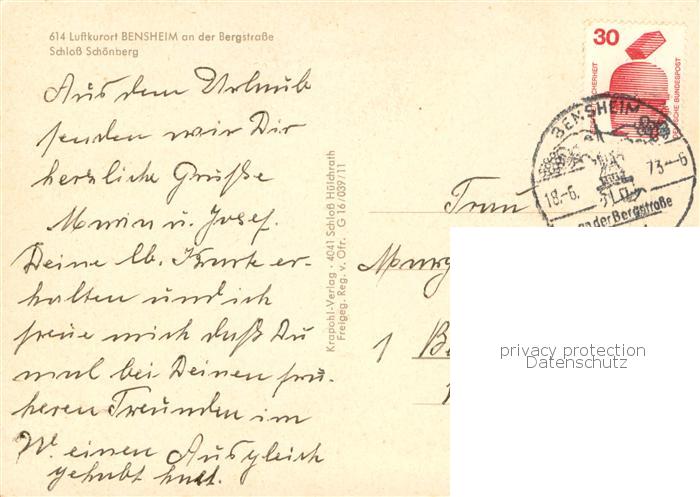 614 Luftkurort BENSHEIM an der Bergstraße
Schloß Schönberg
Aus dem Urlaub
senden wir Dir
herzliche Grüße
Maria u. Josef.
Deine lb. Karte er-
halten und ich
freue mich daß Du
mal bei Deinen frü-
heren Freunden im
W. einen Ausgleich
gehabt hast.
Krapohl-Verlag · 4041 Schloß Hülchrath
Freigeg. Reg. v. Obf. G 16/039/11
30
DEUTSCHE BUNDESPOST
BENSHEIM
18.-6. 73-6
an der Bergstraße
Frau
Marg
1 Be
privacy protection
Datenschutz